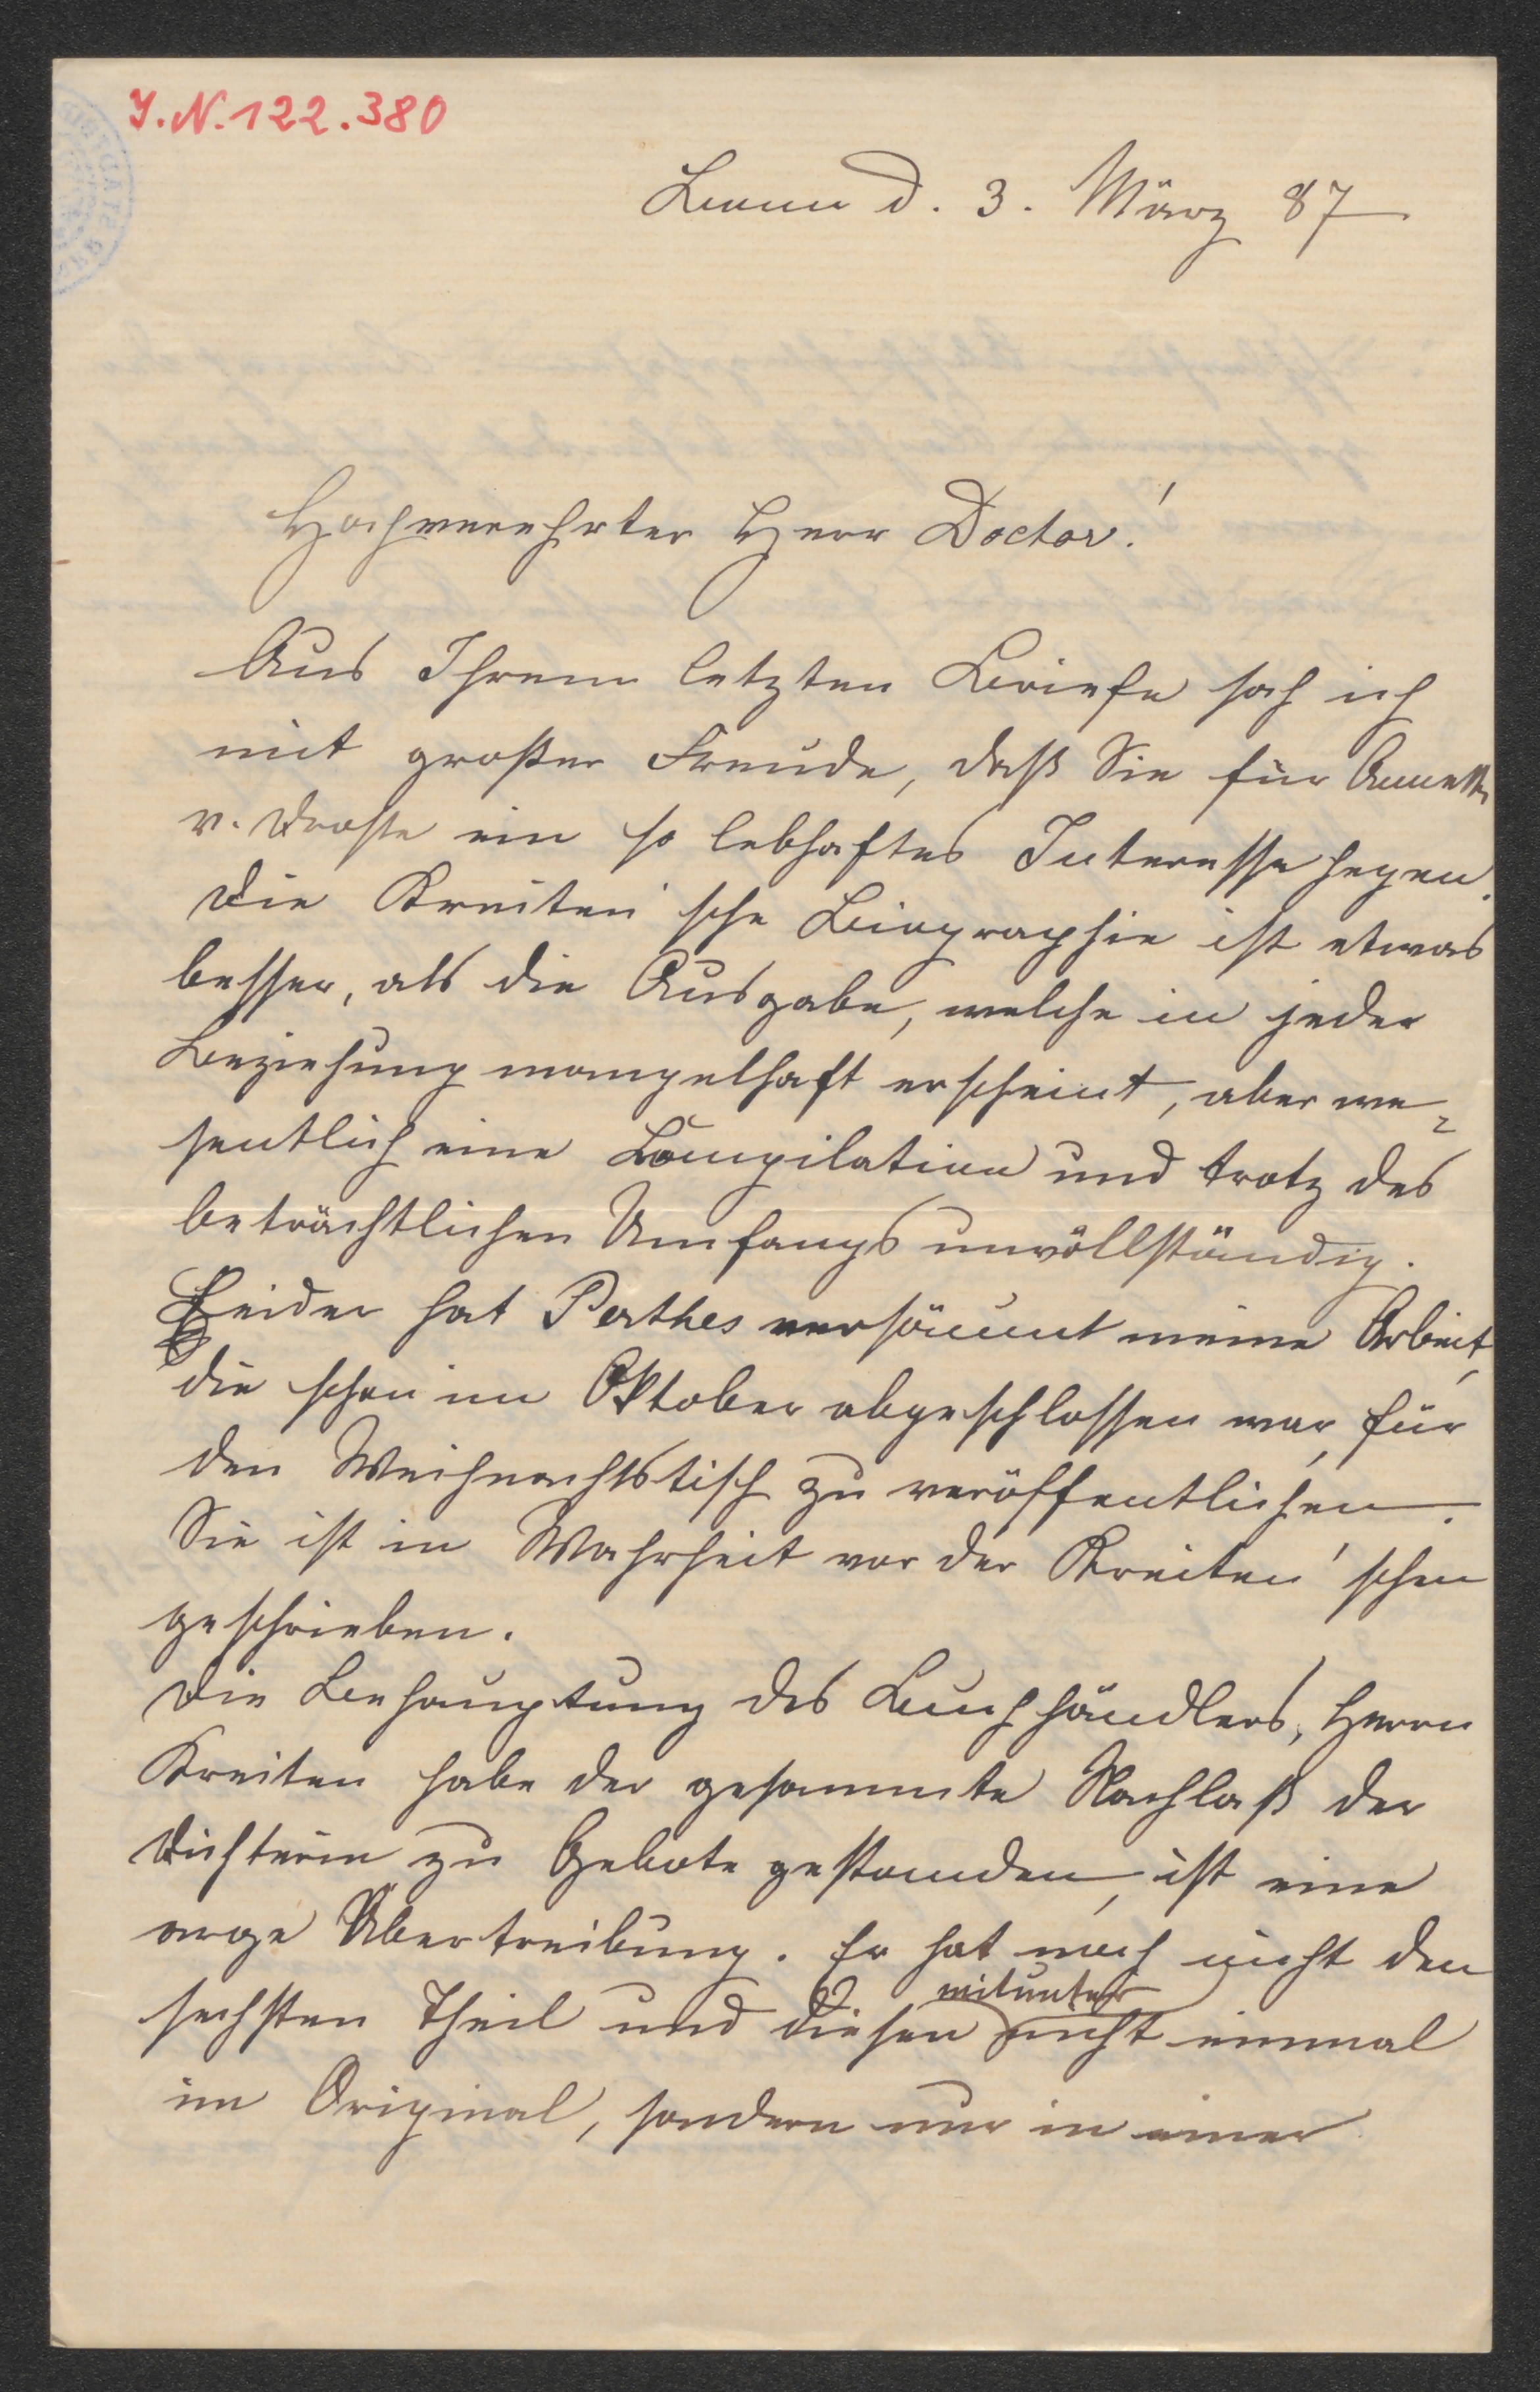 J.N. 122.380
Bonn d. 3. März 87
Hochverehrter Herr Doctor!
Aus Ihrem letzten Briefe sah ich
mit großer Freude, daß Sie für Annette
v. Droste ein so lebhaftes Interesse hegen.
Die Kreiten'sche Biographie ist etwas
besser, als die Ausgabe, welche in jeder
Beziehung mangelhaft erscheint, aber we-
sentlich eine Compilation und trotz des
beträchtlichen Umfangs unvollständig.
Leider hat Perthes versäumt meine Arbeit,
die schon im Oktober abgeschlossen war, für
den Weihnachtstisch zu veröffentlichen.
Sie ist in Wahrheit vor der Kreiten'schen
geschrieben.
Die Behauptung des Buchhändlers, Herrn
Kreiten habe der gesammte Nachlaß der
Dichterin zu Gebote gestanden, ist eine
arge Übertreibung. Er hat noch nicht den
sechsten Theil und diesen mitunter nicht einmal
im Original, sondern nur in einer